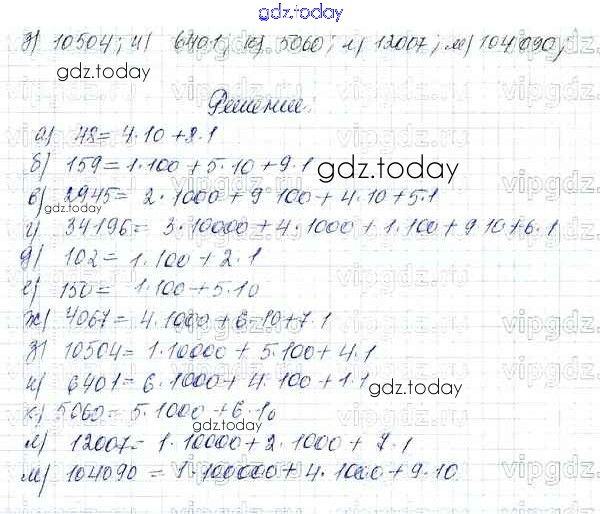 gdz.today
з) 10504; и) 6401; к) 5060; л) 12007; м) 104090;
gdz.today
Решение:
а) 48 = 4·10 + 8·1
б) 159 = 1·100 + 5·10 + 9·1
gdz.today
в) 2945 = 2·1000 + 9 100 + 4·10 + 5·1
gdz.today
г) 34196 = 3·10000 + 4·1000 + 1·100 + 9 10 + 6·1
д) 102 = 1·100 + 2·1
е) 150 = 1·100 + 5·10
ж) 4067 = 4·1000 + 6·10 + 7·1
з) 10504 = 1·10000 + 5·100 + 4·1
и) 6401 = 6·1000 + 4·100 + 1·1
gdz.today
к) 5060 = 5·1000 + 6·10
л) 12007 = 1·10000 + 2·1000 + 7·1
м) 104090 = 1·100000 + 4·1000 + 9·10
gdz.today